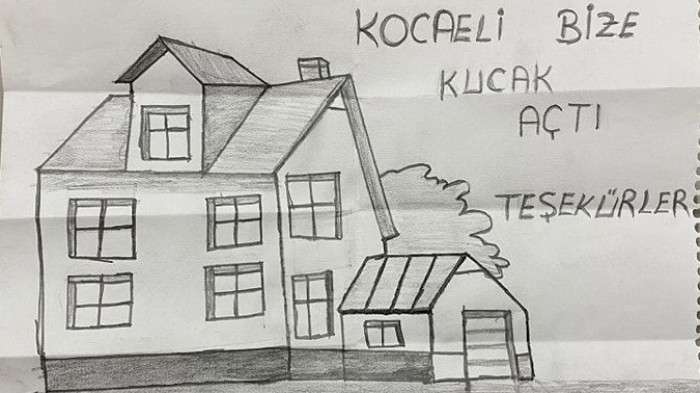 KOCAELİ BİZE
KUCAK
AÇTI
TEŞEKÜRLER